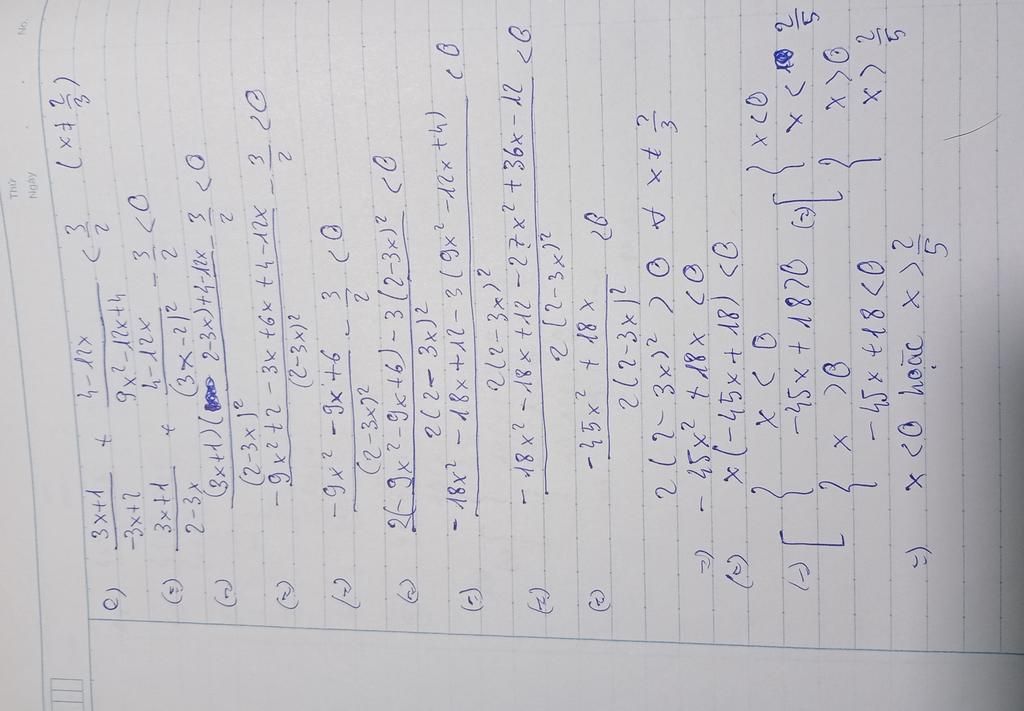 No.
Thứ
Ngày
e) (3x+1)/(-3x+2) + (4-12x)/(9x²-12x+4) < 3/2 (x ≠ 2/3)
(=) (3x+1)/(2-3x) + (4-12x)/(3x-2)² - 3/2 < 0
(=) ((3x+1)(2-3x)+4-12x)/(2-3x)² - 3/2 < 0
(=) (-9x²+2-3x+6x+4-12x)/(2-3x)² - 3/2 < 0
(=) (-9x²-9x+6)/(2-3x)² - 3/2 < 0
(=) (2(-9x²-9x+6)-3(2-3x)²)/(2(2-3x)²) < 0
(=) (-18x²-18x+12-3(9x²-12x+4))/(2(2-3x)²) < 0
(=) (-18x²-18x+12-27x²+36x-12)/(2(2-3x)²) < 0
(=) (-45x²+18x)/(2(2-3x)²) < 0
2(2-3x)² > 0 ∀ x ≠ 2/3
=) -45x²+18x < 0
(=) x(-45x+18) < 0
(=) [ { x < 0 (=) [ { x < 0
-45x+18 > 0 x < 2/5
{ x > 0 { x > 0
-45x+18 < 0 x > 2/5
=) x < 0 hoặc x > 2/5